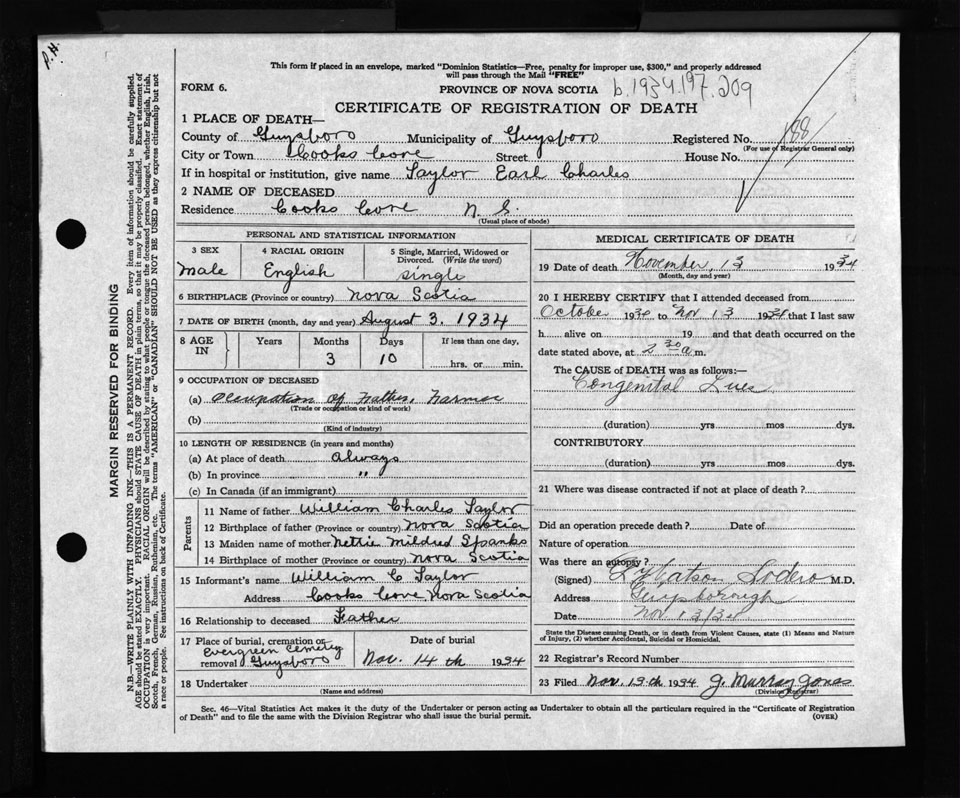 P.H.
This form if placed in an envelope, marked "Dominion Statistics—Free, penalty for improper use, $300," and properly addressed
will pass through the Mail "FREE"
FORM 6.
PROVINCE OF NOVA SCOTIA b.1934.197.209
CERTIFICATE OF REGISTRATION OF DEATH
1 PLACE OF DEATH—
County of Guysboro Municipality of Guysboro Registered No. 188
(For use of Registrar General only)
City or Town Cooks Cove Street House No.
If in hospital or institution, give name Taylor Earl Charles
2 NAME OF DECEASED
Residence Cooks Cove N. S.
(Usual place of abode)
PERSONAL AND STATISTICAL INFORMATION
3 SEX 4 RACIAL ORIGIN 5 Single, Married, Widowed or
Divorced. (Write the word)
Male English Single
6 BIRTHPLACE (Province or country) Nova Scotia
7 DATE OF BIRTH (month, day and year) August 3. 1934
8 AGE IN Years Months Days If less than one day,
3 10 hrs. or min.
9 OCCUPATION OF DECEASED
(a) Occupation of Father. Farmer
(Trade or occupation or kind of work)
(b)
(Kind of industry)
10 LENGTH OF RESIDENCE (in years and months)
(a) At place of death Always
(b) In province "
(c) In Canada (if an immigrant)
Parents
11 Name of father William Charles Taylor
12 Birthplace of father (Province or country) Nova Scotia
13 Maiden name of mother Nettie Mildred Spanks
14 Birthplace of mother (Province or country) Nova Scotia
15 Informant's name William C Taylor
Address Cooks Cove Nova Scotia
16 Relationship to deceased Father
17 Place of burial, cremation or Date of burial
Evergreen Cemetery
removal Guysboro Nov. 14th 1934
18 Undertaker
(Name and address)
MEDICAL CERTIFICATE OF DEATH
19 Date of death November, 13 1934
(Month, day and year)
20 I HEREBY CERTIFY that I attended deceased from
October 1934 to Nov 13 1934 that I last saw
h alive on 19 and that death occurred on
date stated above, at 2 30 a m.
The CAUSE of DEATH was as follows:—
Congenital Lues
(duration) yrs mos dys.
CONTRIBUTORY
(duration) yrs mos dys.
21 Where was disease contracted if not at place of death?
Did an operation precede death? Date of
Nature of operation
Was there an autopsy?
(Signed) M.D.
Address Guysborough
Date Nov 13/34
State the Disease causing Death, or in death from Violent Causes, state (1) Means and Nature
of Injury, (2) whether Accidental, Suicidal or Homicidal.
22 Registrar's Record Number
23 Filed Nov. 13th 1934 J. Murray Jones
(Division Registrar)
Sec. 46—Vital Statistics Act makes it the duty of the Undertaker or person acting as Undertaker to obtain all the particulars required in the "Certificate of Registration
of Death" and to file the same with the Division Registrar who shall issue the burial permit.
(OVER)
MARGIN RESERVED FOR BINDING
N.B.—WRITE PLAINLY WITH UNFADING INK—THIS IS A PERMANENT RECORD. Every item of information should be carefully supplied.
AGE should be stated EXACTLY. PHYSICIANS should STATE CAUSE OF DEATH in plain terms, so that it may be properly classified. Exact statement of
OCCUPATION is very important. RACIAL ORIGIN will be described by stating to what people or tongue the deceased person belonged, whether English, Irish,
Scotch, French, German, Russian, Ruthenian, etc. The terms "AMERICAN" or "CANADIAN" SHOULD NOT BE USED as they express citizenship but not
a race or people. See instructions on back of Certificate.